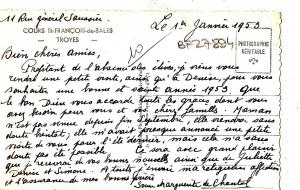 11 Rue général Saussier.
COURS St-FRANÇOIS-de-SALES
TROYES
Le 1er Janvier 1953
BF27894
PHOTOGRAPHIE
VÉRITABLE
Bien chères Amies,
Profitant de l'absence des élèves, je viens vous
rendre une petite visite, ainsi qu'à Denise, pour vous
souhaiter une bonne et sainte année 1953. Que
le bon Dieu vous accorde toutes les grâces dont vous
avez besoin pour vous et vos chères familles. Maman
n'est pas venue depuis fin Septembre, elle viendra sans
doute bientôt, elle m'avait presque annoncé une petite
visite de vous pour l'été dernier, mais cela ne vous a
sans doute pas été possible. Ce sera avec grand plaisir
que je recevrai de vos bonnes nouvelles ainsi que de Juliette
Denise et Simone. A toutes je envoie ma religieuse affection
et l'assurance de mes bonnes prières
Soeur Marguerite de Chantal